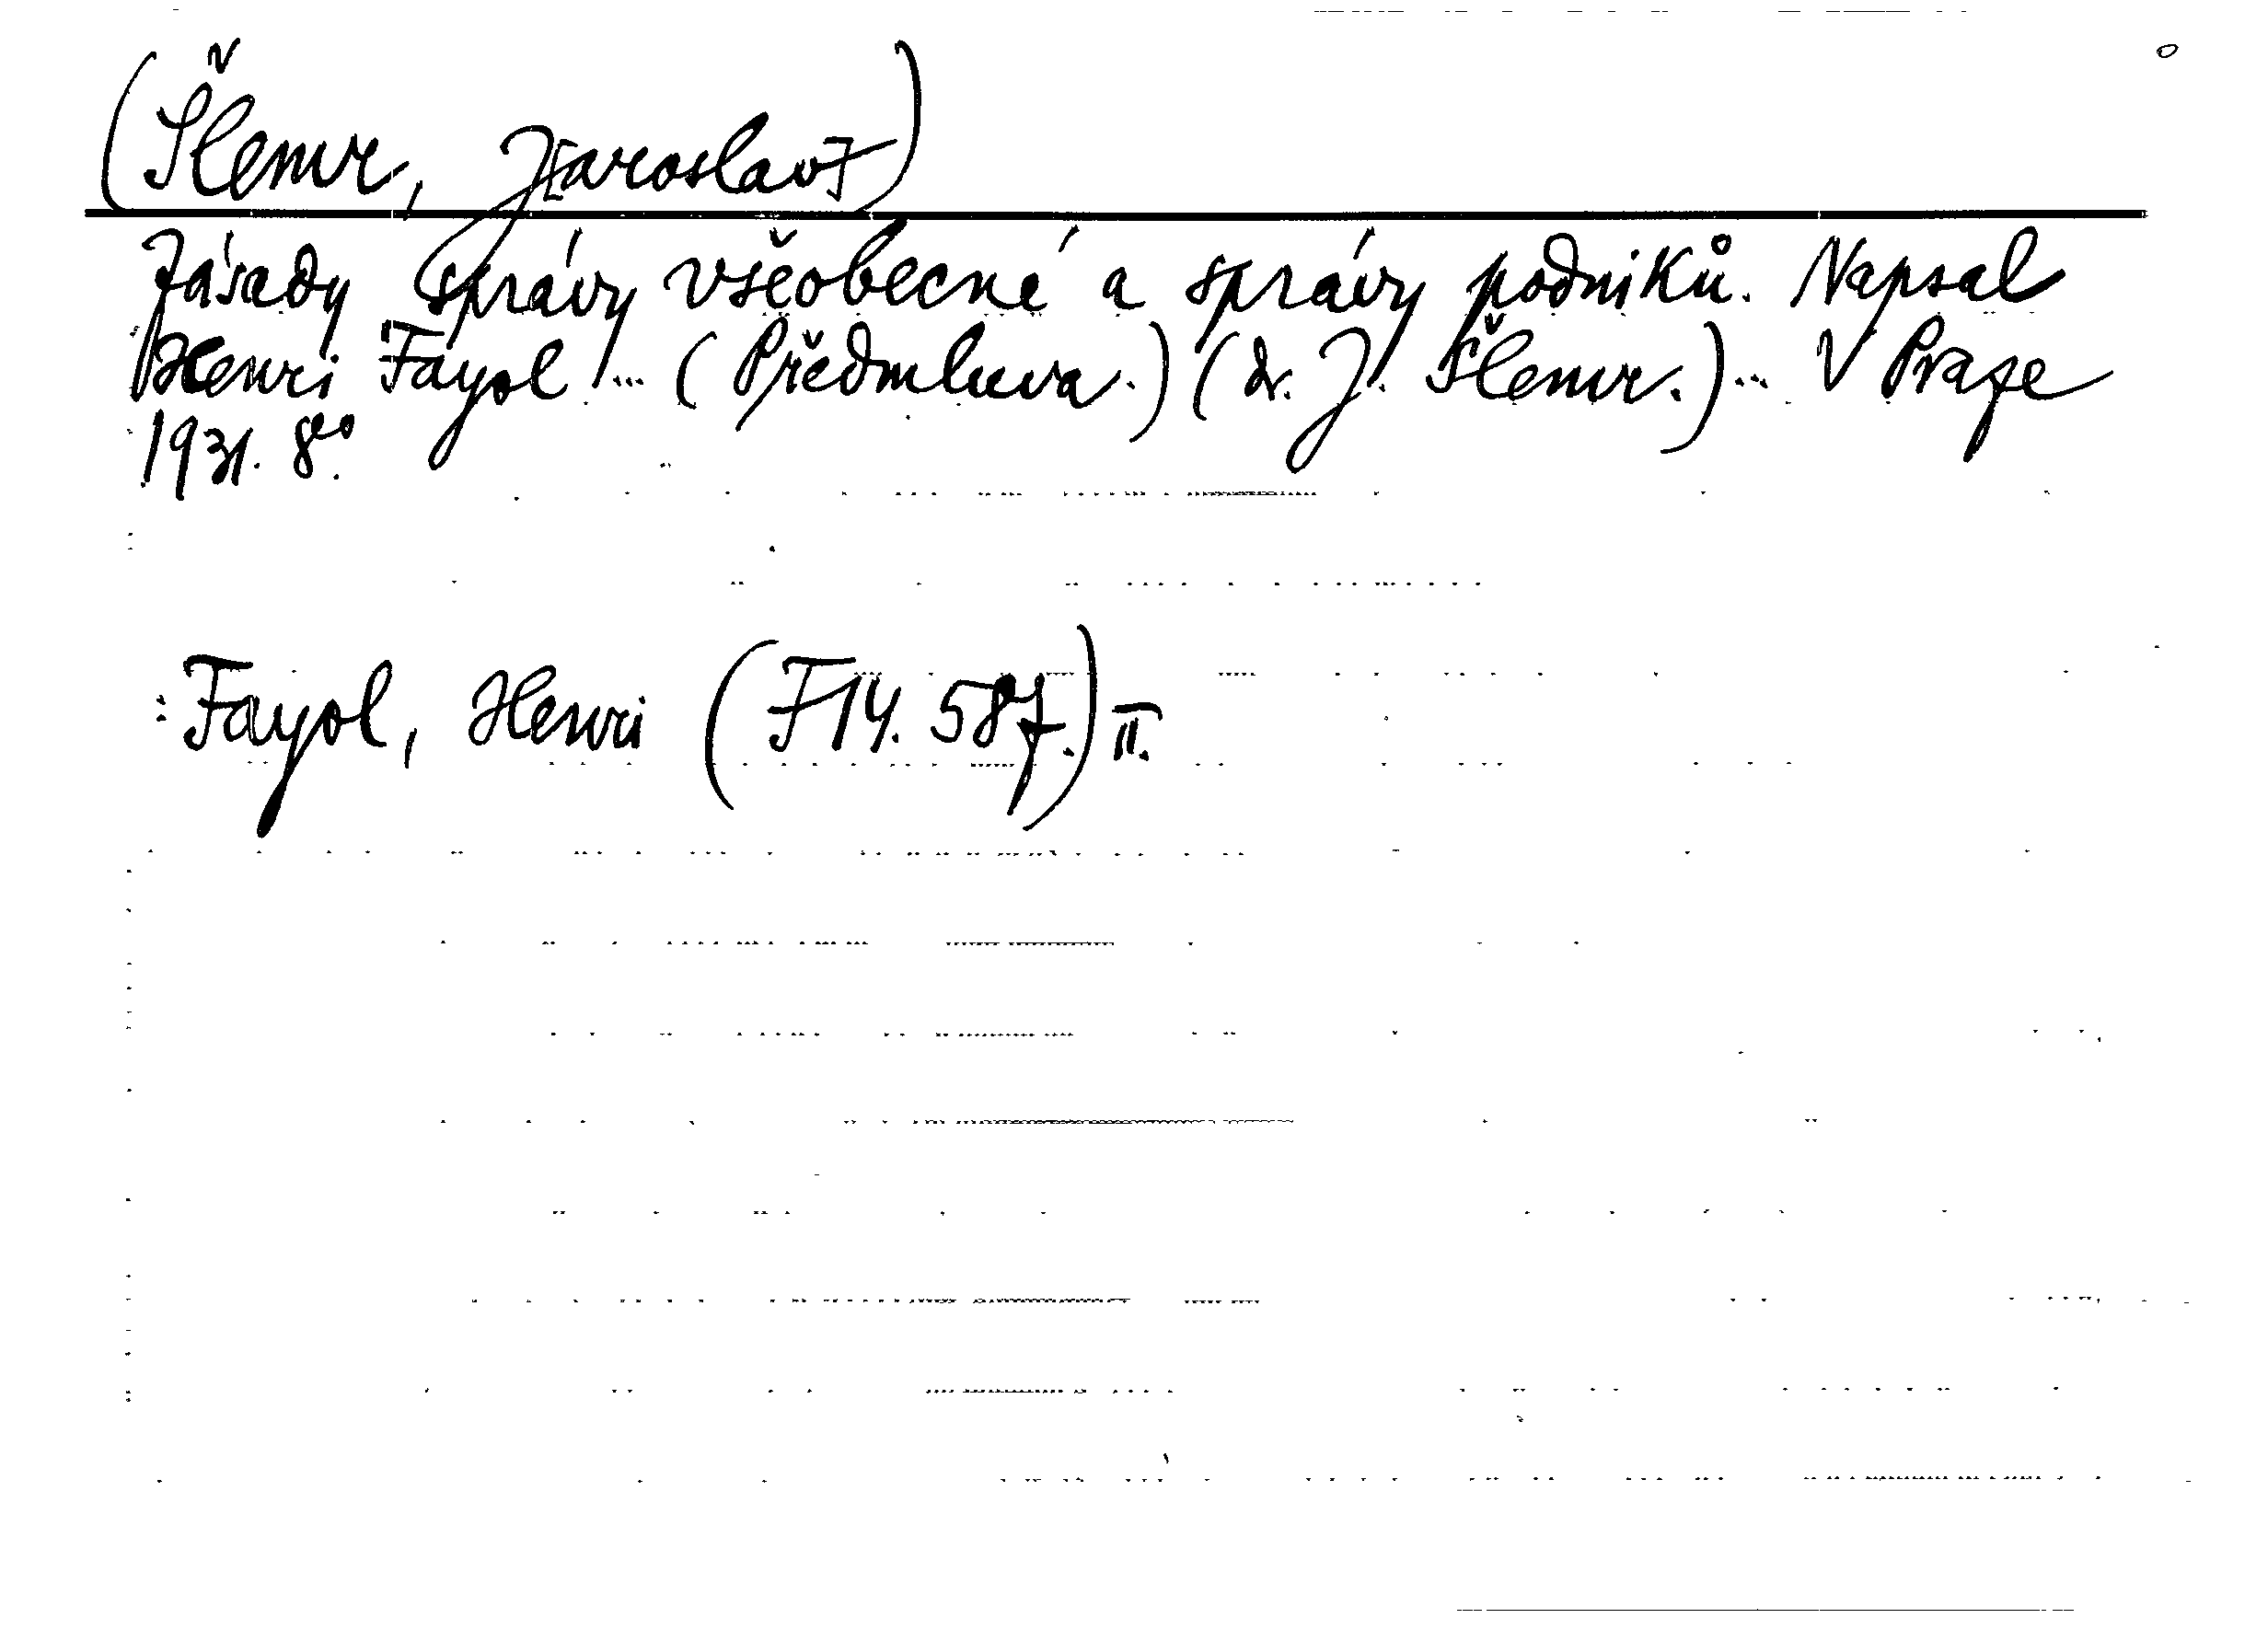 (Šlemr, J[aroslav])
Zásady správy všeobecné a správy podniků. Napsal
Henri Fayol ... (Předmluva.) (dr. J. Šlemr.) ... V Praze
1931. 8°.
Fayol, Henri (F 14. 587.) II.